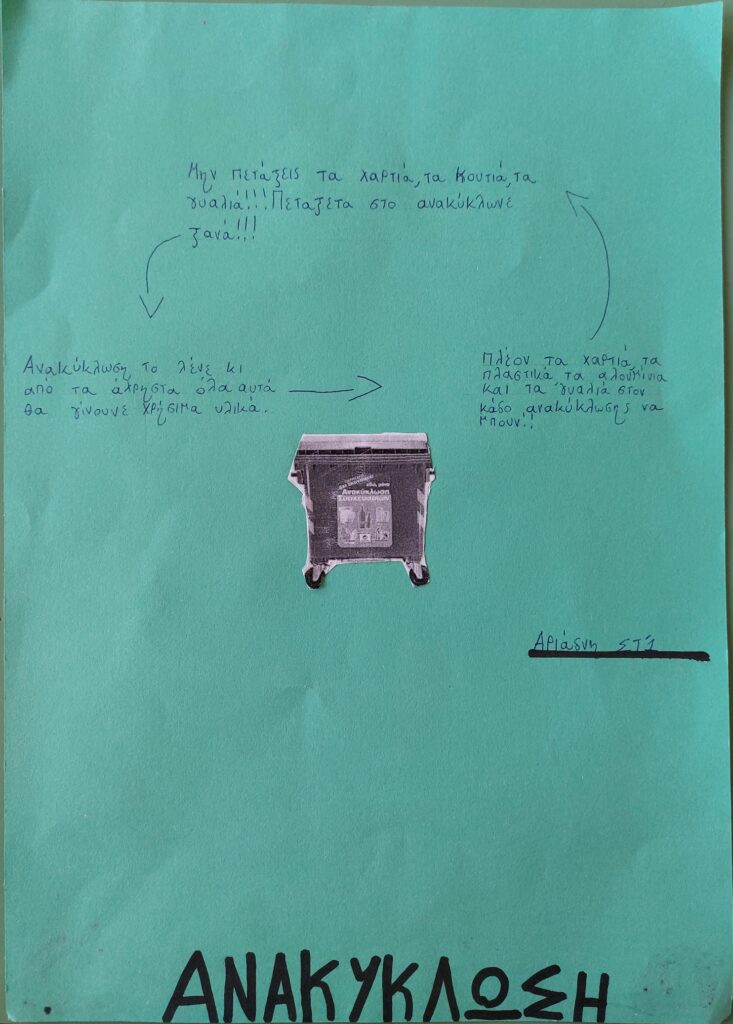 Μην πετάξεις τα χαρτιά, τα κουτιά, τα
γυαλιά!!! Πεταξετα στο ανακύκλωνε
ξανά!!!
Ανακύκλωση το λένε κι
από τα άχρηστα όλα αυτά
θα γίνουνε χρήσιμα υλικά.
Πλέον τα χαρτιά, τα
πλαστικά τα αλουμίνια
και τα γυαλιά στον
κάδο ανακύκλωσης να
μπουν!!
εδώ μόνο
Ανακύκλωση
Συσκευασιών
Αριάδνη ΣΤ'1
ΑΝΑΚΥΚΛΩΣΗ